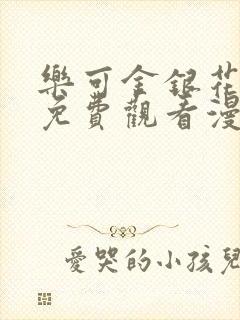 樂可金銀花
免費觀看漫
愛哭的小孩兒